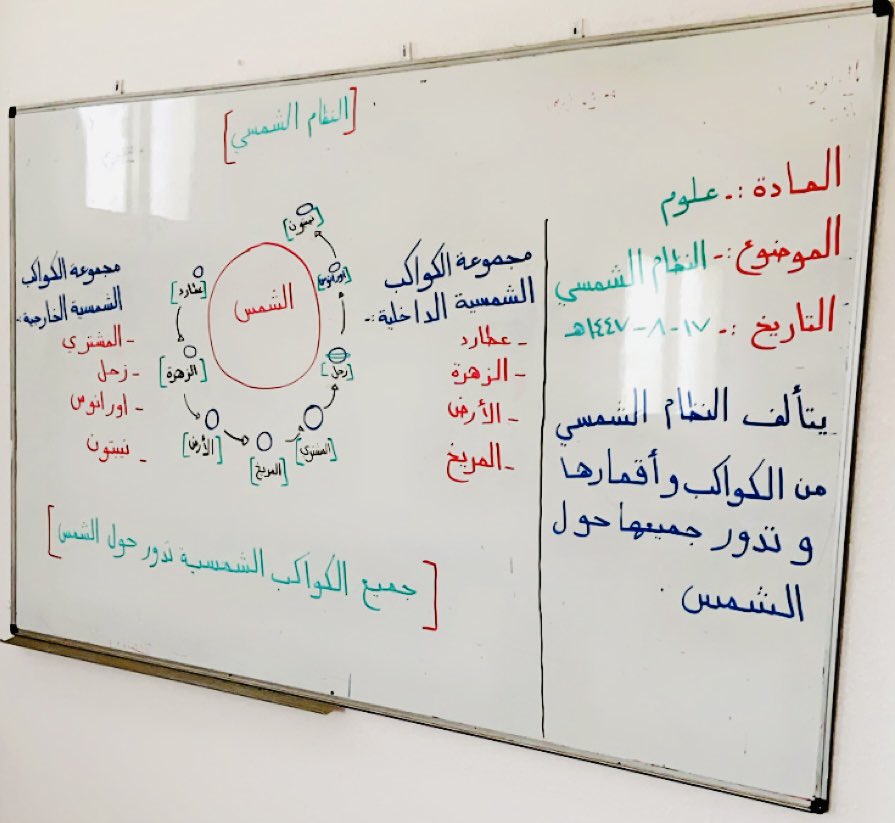 [النظام الشمسي]
المادة :- علوم
الموضوع :- النظام الشمسي
التاريخ :- ١٧-٨-١٤٤٧هـ
يتألف النظام الشمسي
من الكواكب وأقمارها
و تدور جميعها حول
الشمس
مجموعة الكواكب
الشمسية الداخلية :-
- عطارد
- الزهرة
- الأرض
- المريخ
الشمس
[عطارد]
[الزهرة]
[الأرض]
[المريخ]
[المشتري]
[زحل]
[اورانوس]
[نبتون]
مجموعة الكواكب
الشمسية الخارجية :-
- المشتري
- زحل
- اورانوس
- نيبتون
[جميع الكواكب الشمسية تدور حول الشمس]